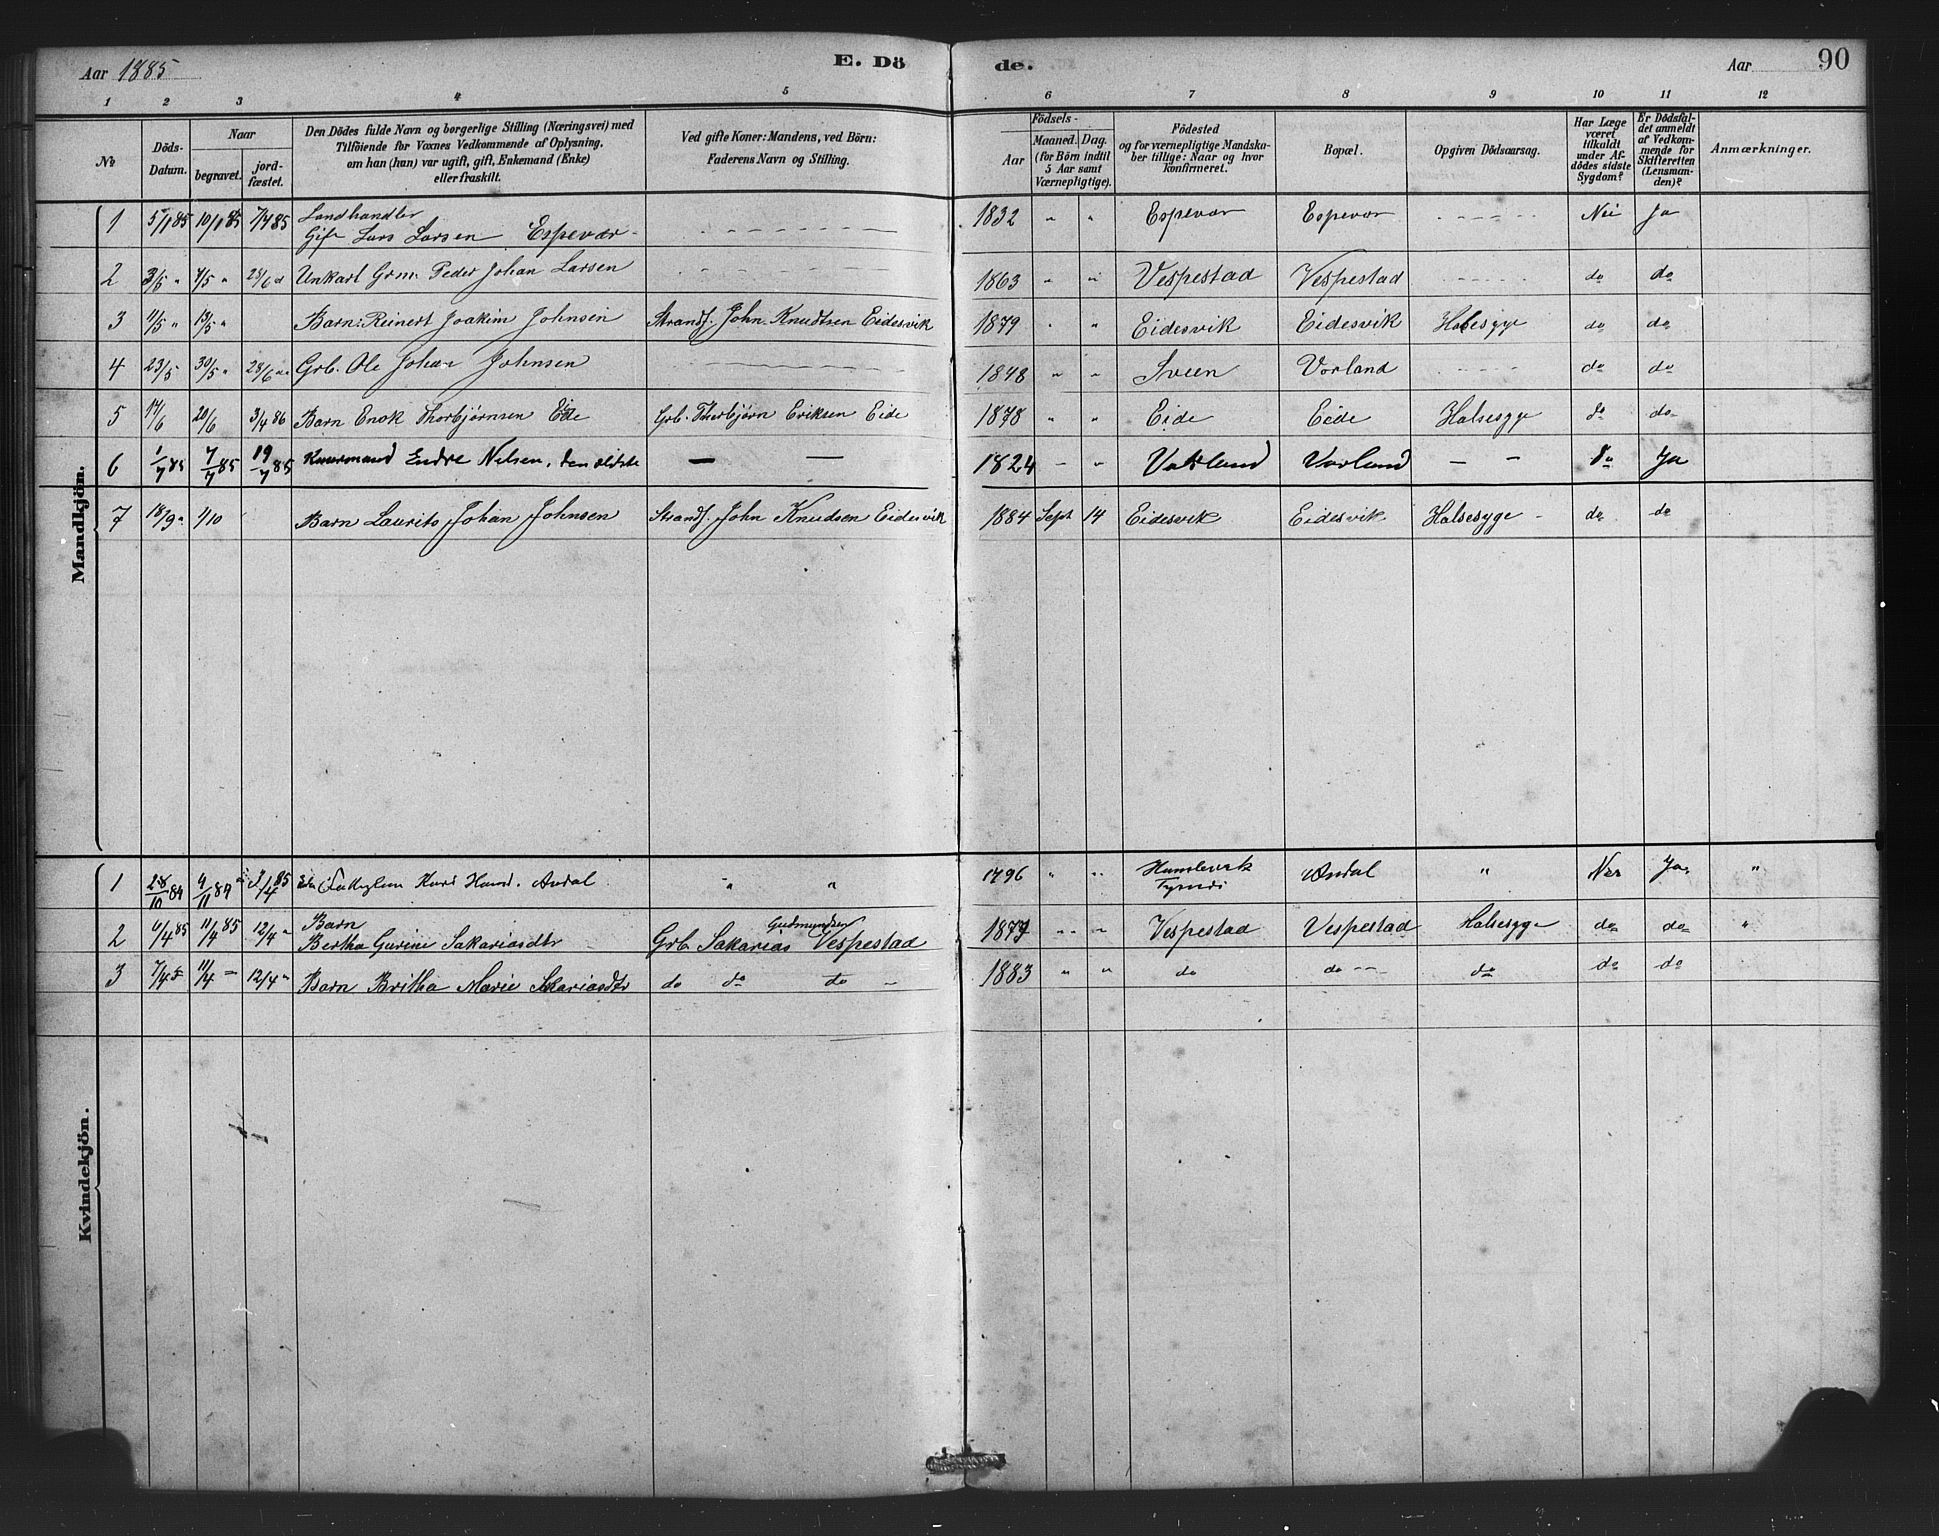 Aar 1885 E. Dö de. Aar 90
1 2 3 4 5 6 7 8 9 10 11 12
No
Döds-Datum.
Naar
begravet.
jord-fæstet.
Den Dödes fulde Navn og borgerlige Stilling (Næringsvei) med
Tilföiende for Voxnes Vedkommende af Oplysning,
om han (hun) var ugift, gift, Enkemand (Enke)
eller fraskilt.
Ved gifte Koner: Mandens, ved Börn:
Faderens Navn og Stilling.
Födsels-
Aar
Maaned. Dag.
(for Börn indtil
5 Aar samt
Værnepligtige).
Födested
og for værnepligtige Mandska-
ber tillige: Naar og hvor
konfirmeret.
Bopæl.
Opgiven Dödsaarsag.
Har Læge
været
tilkaldt
under Af-
dödes sidste
Sygdom?
Er Dödsfal-
det anmeldt
af Vedkom-
mende for
Skifteretten
(Lensman-
den)?
Anmærkninger.
Mandkjön.
1 5/1 85 10/1 85 7/4 85 Landhandler
Gift Lars Larsen Espevær - 1832 " " Espevær Espevær Nei Ja
2 3/5 " 7/5 " 28/6 Unkarl Grm. Peder Johan Larsen 1863 " " Vespestad Vespestad do do
3 11/5 " 13/5 " Barn: Reinert Joakim Johnsen Strands. John Knudtsen Eidesvik 1879 " " Eidesvik Eidesvik Halsesyge do do
4 23/5 30/5 " 28/6 Grb. Ole Johan Johnsen 1848 " " Sveen Vorland do do
5 14/6 20/6 3/4 86 Barn Enok Thorbjørnsen Eide Grb. Thorbjørn Eriksen Eide 1878 " " Eide Eide Halsesyge do do
6 1/7 85 7/7 85 19/7 85 Endre Nilsen, den ældste — — 1824 - " Vorland Vorland — — do Ja
7 18/9 " 1/10 Barn Laurits Johan Johnsen Strands. John Knudsen Eidesvik 1884 Sept 14 Eidesvik Eidesvik Halsesyge - do do
Kvindekjön.
1 28/10 84 4/11 84 Kari Hansd. Andal " " 1796 " " Andal " Nei Ja "
2 4/4 85 11/4 85 12/4 " Barn
Bertha Gurine Sakariasdtr Grb. Sakarias Gudmundsen Vespestad 1877 " " Vespestad Vespestad Halsesyge do do "
3 7/4 11/4 — 12/4 " Barn Britha Marie Sakariasdtr do do do - 1883 " " do do do do do